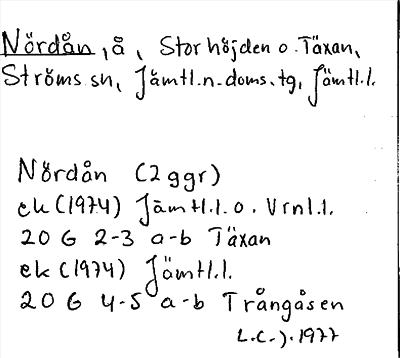 Nördån, å, Storhöjden o. Täxan,
Ströms sn, Jämtl.n.doms.tg, Jämtl.l.
Nördån (2 ggr)
ek (1974) Jämtl.l. o. Vrnl.l.
20 G 2-3 a-b Täxan
ek (1974) Jämtl.l.
20 G 4-5 a-b Trångåsen
L.C.J. 1977